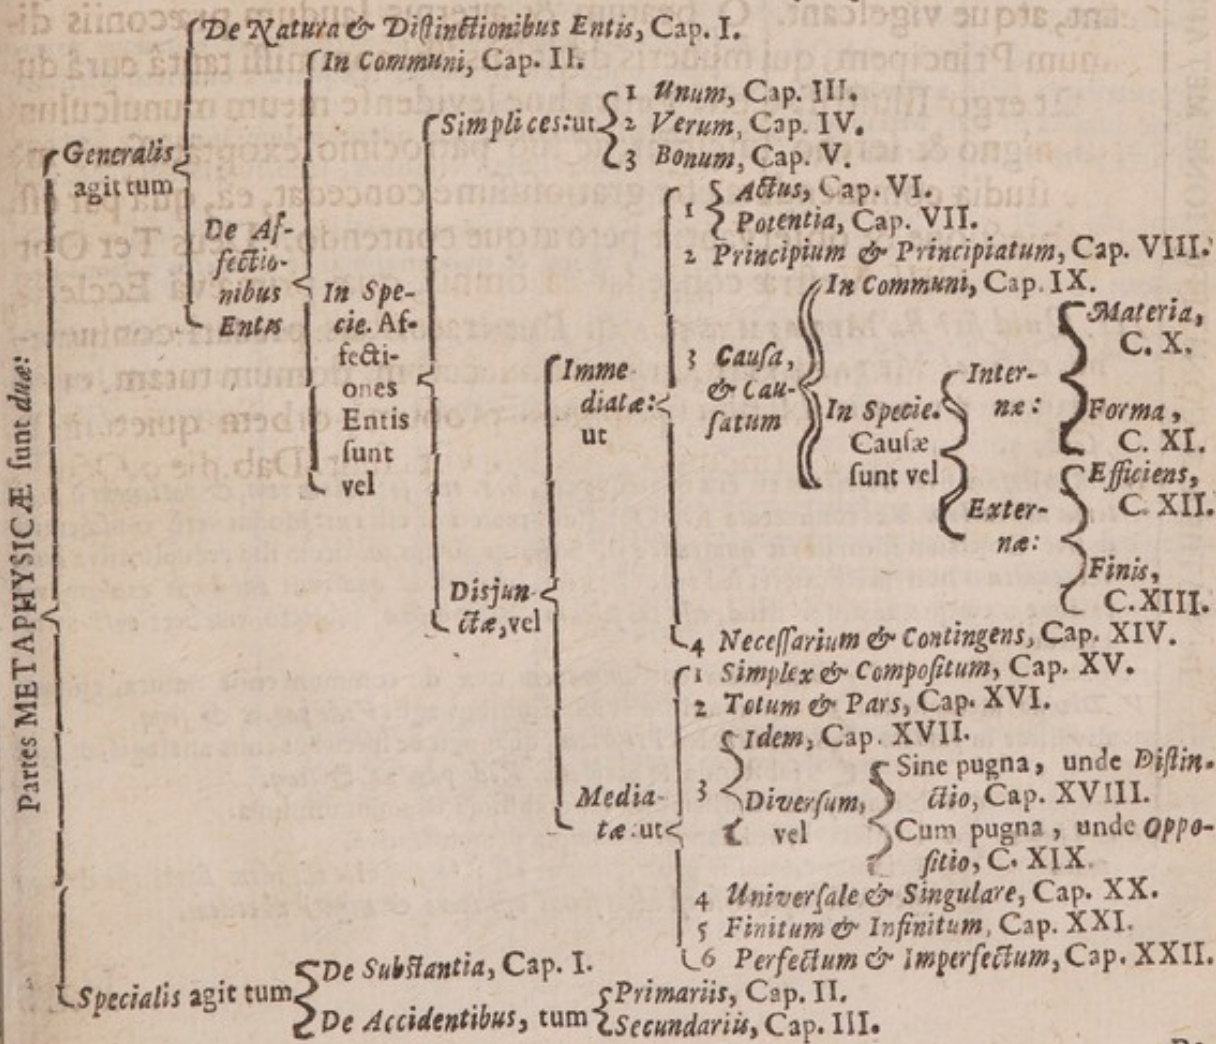 Partes METAPHYSICÆ sunt duæ:
Generalis
agit tum
De Natura & Distinctionibus Entis, Cap. I.
De Af-
fectio-
nibus
Entis
In Communi, Cap. II.
In Spe-
cie. Af-
fecti-
ones
Entis
sunt
vel
Simplices: ut
1 Unum, Cap. III.
2 Verum, Cap. IV.
3 Bonum, Cap. V.
Disjun-
ctæ, vel
Imme
diatæ:
ut
1
Actus, Cap. VI.
Potentia, Cap. VII.
2 Principium & Principiatum, Cap. VIII.
3 Causa,
& Cau-
satum
In Communi, Cap. IX.
In Specie.
Causæ
sunt vel
Inter-
næ:
Materia,
C. X.
Forma,
C. XI.
Exter-
næ:
Efficiens,
C. XII.
Finis,
C. XIII.
4 Necessarium & Contingens, Cap. XIV.
Media-
tæ: ut
1 Simplex & Compositum, Cap. XV.
2 Totum & Pars, Cap. XVI.
3
Idem, Cap. XVII.
Diversum,
vel
Sine pugna, unde Distin-
ctio, Cap. XVIII.
Cum pugna, unde Oppo-
sitio, C. XIX.
4 Universale & Singulare, Cap. XX.
5 Finitum & Infinitum, Cap. XXI.
6 Perfectum & Imperfectum, Cap. XXII.
Specialis agit tum
De Substantia, Cap. I.
De Accidentibus, tum
Primariis, Cap. II.
Secundariis, Cap. III.